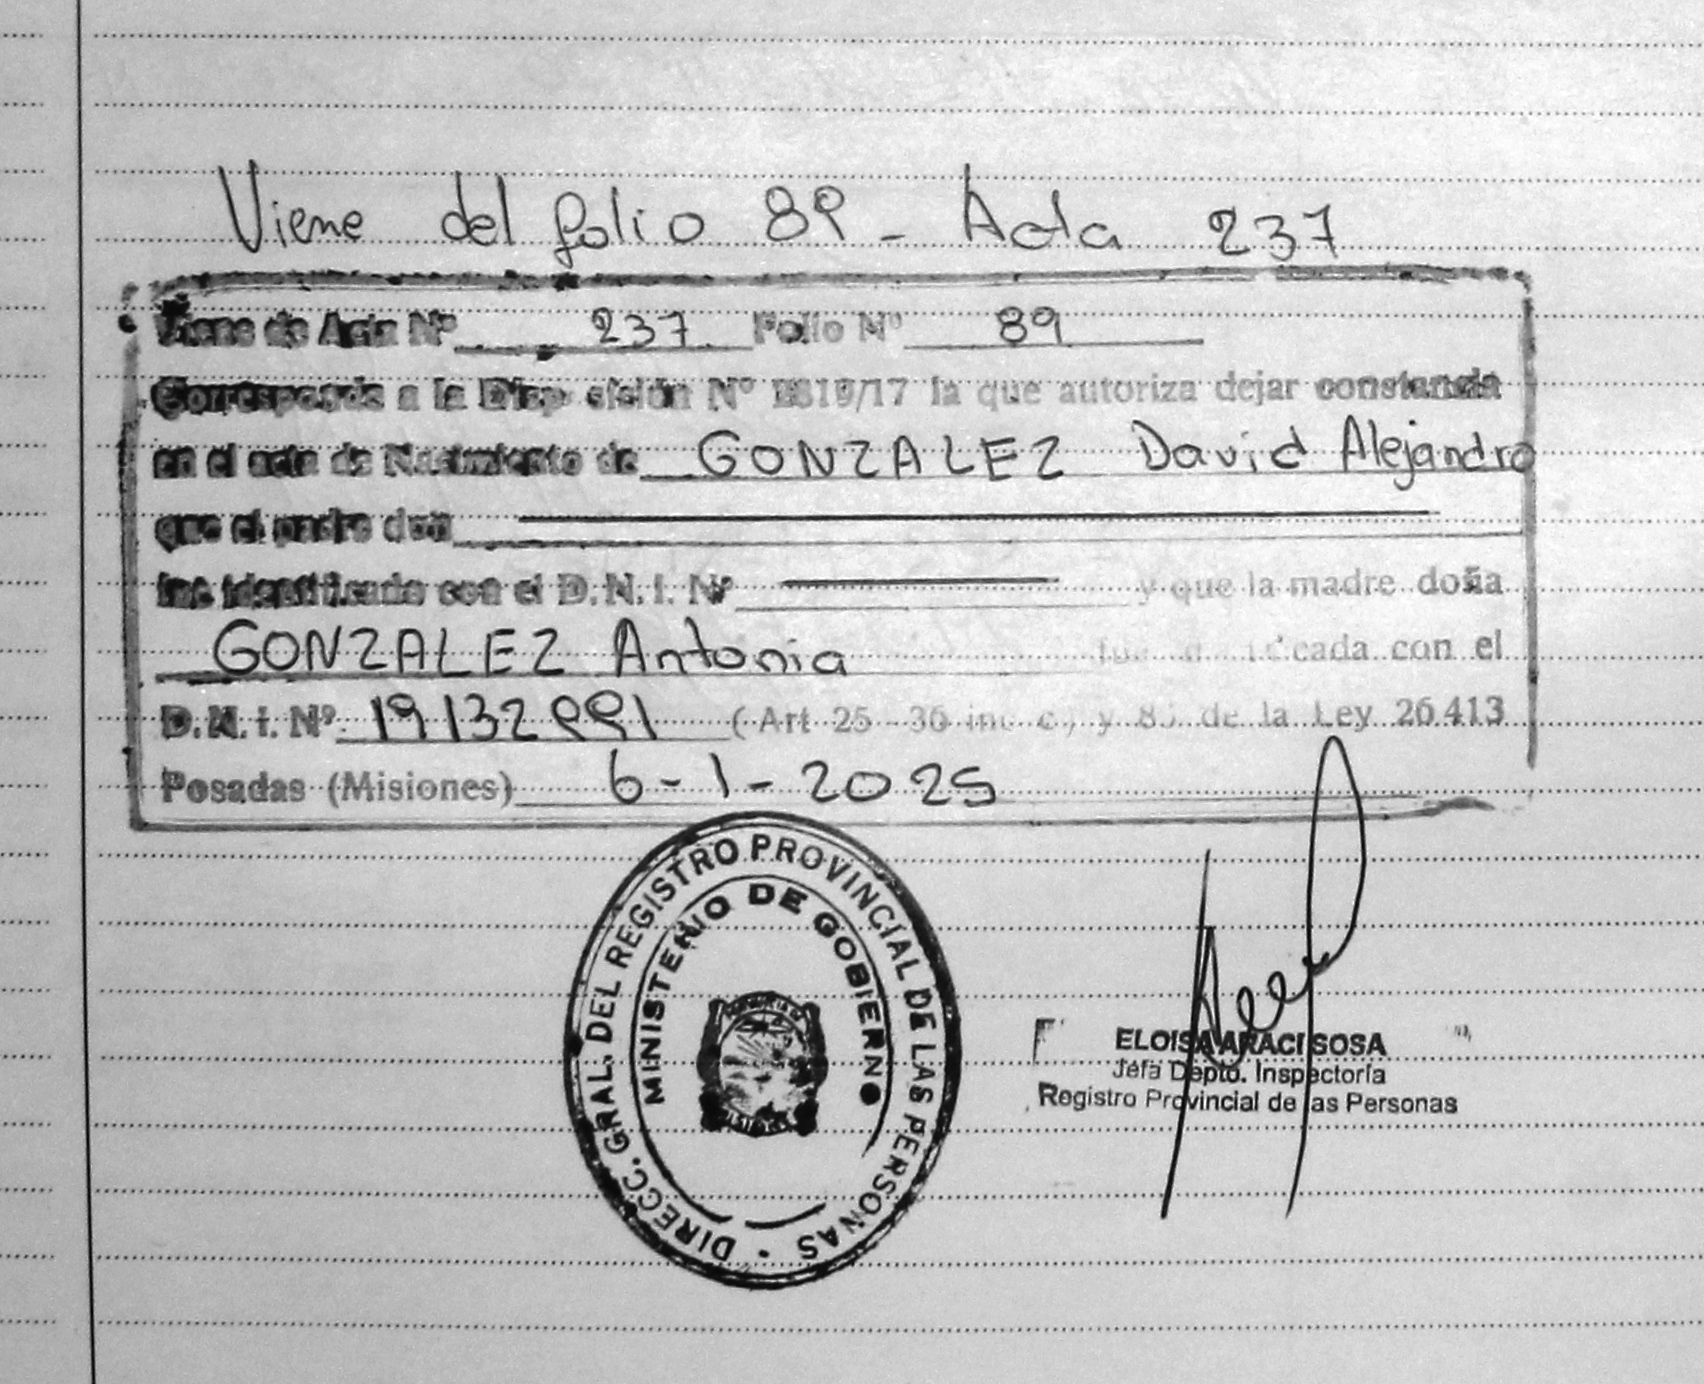 Viene del folio 89 - Acta 237
Viene de Acta Nº 237 Folio Nº 89
Corresponde a la Disposición Nº 1819/17 la que autoriza dejar constancia
en el acta de Nacimiento de GONZALEZ David Alejandro
que el padre don
fue identificado con el D.N.I. Nº y que la madre doña
GONZALEZ Antonia fue identificada con el
D.N.I. Nº 19132991 (Art 25 - 36 inc c) y 85 de la Ley 26.413
Posadas (Misiones) 6-1-2025
DIRECC. GRAL. DEL REGISTRO PROVINCIAL DE LAS PERSONAS
MINISTERIO DE GOBIERNO
ELOISA ARACI SOSA
Jefa Depto. Inspectoría
Registro Provincial de las Personas